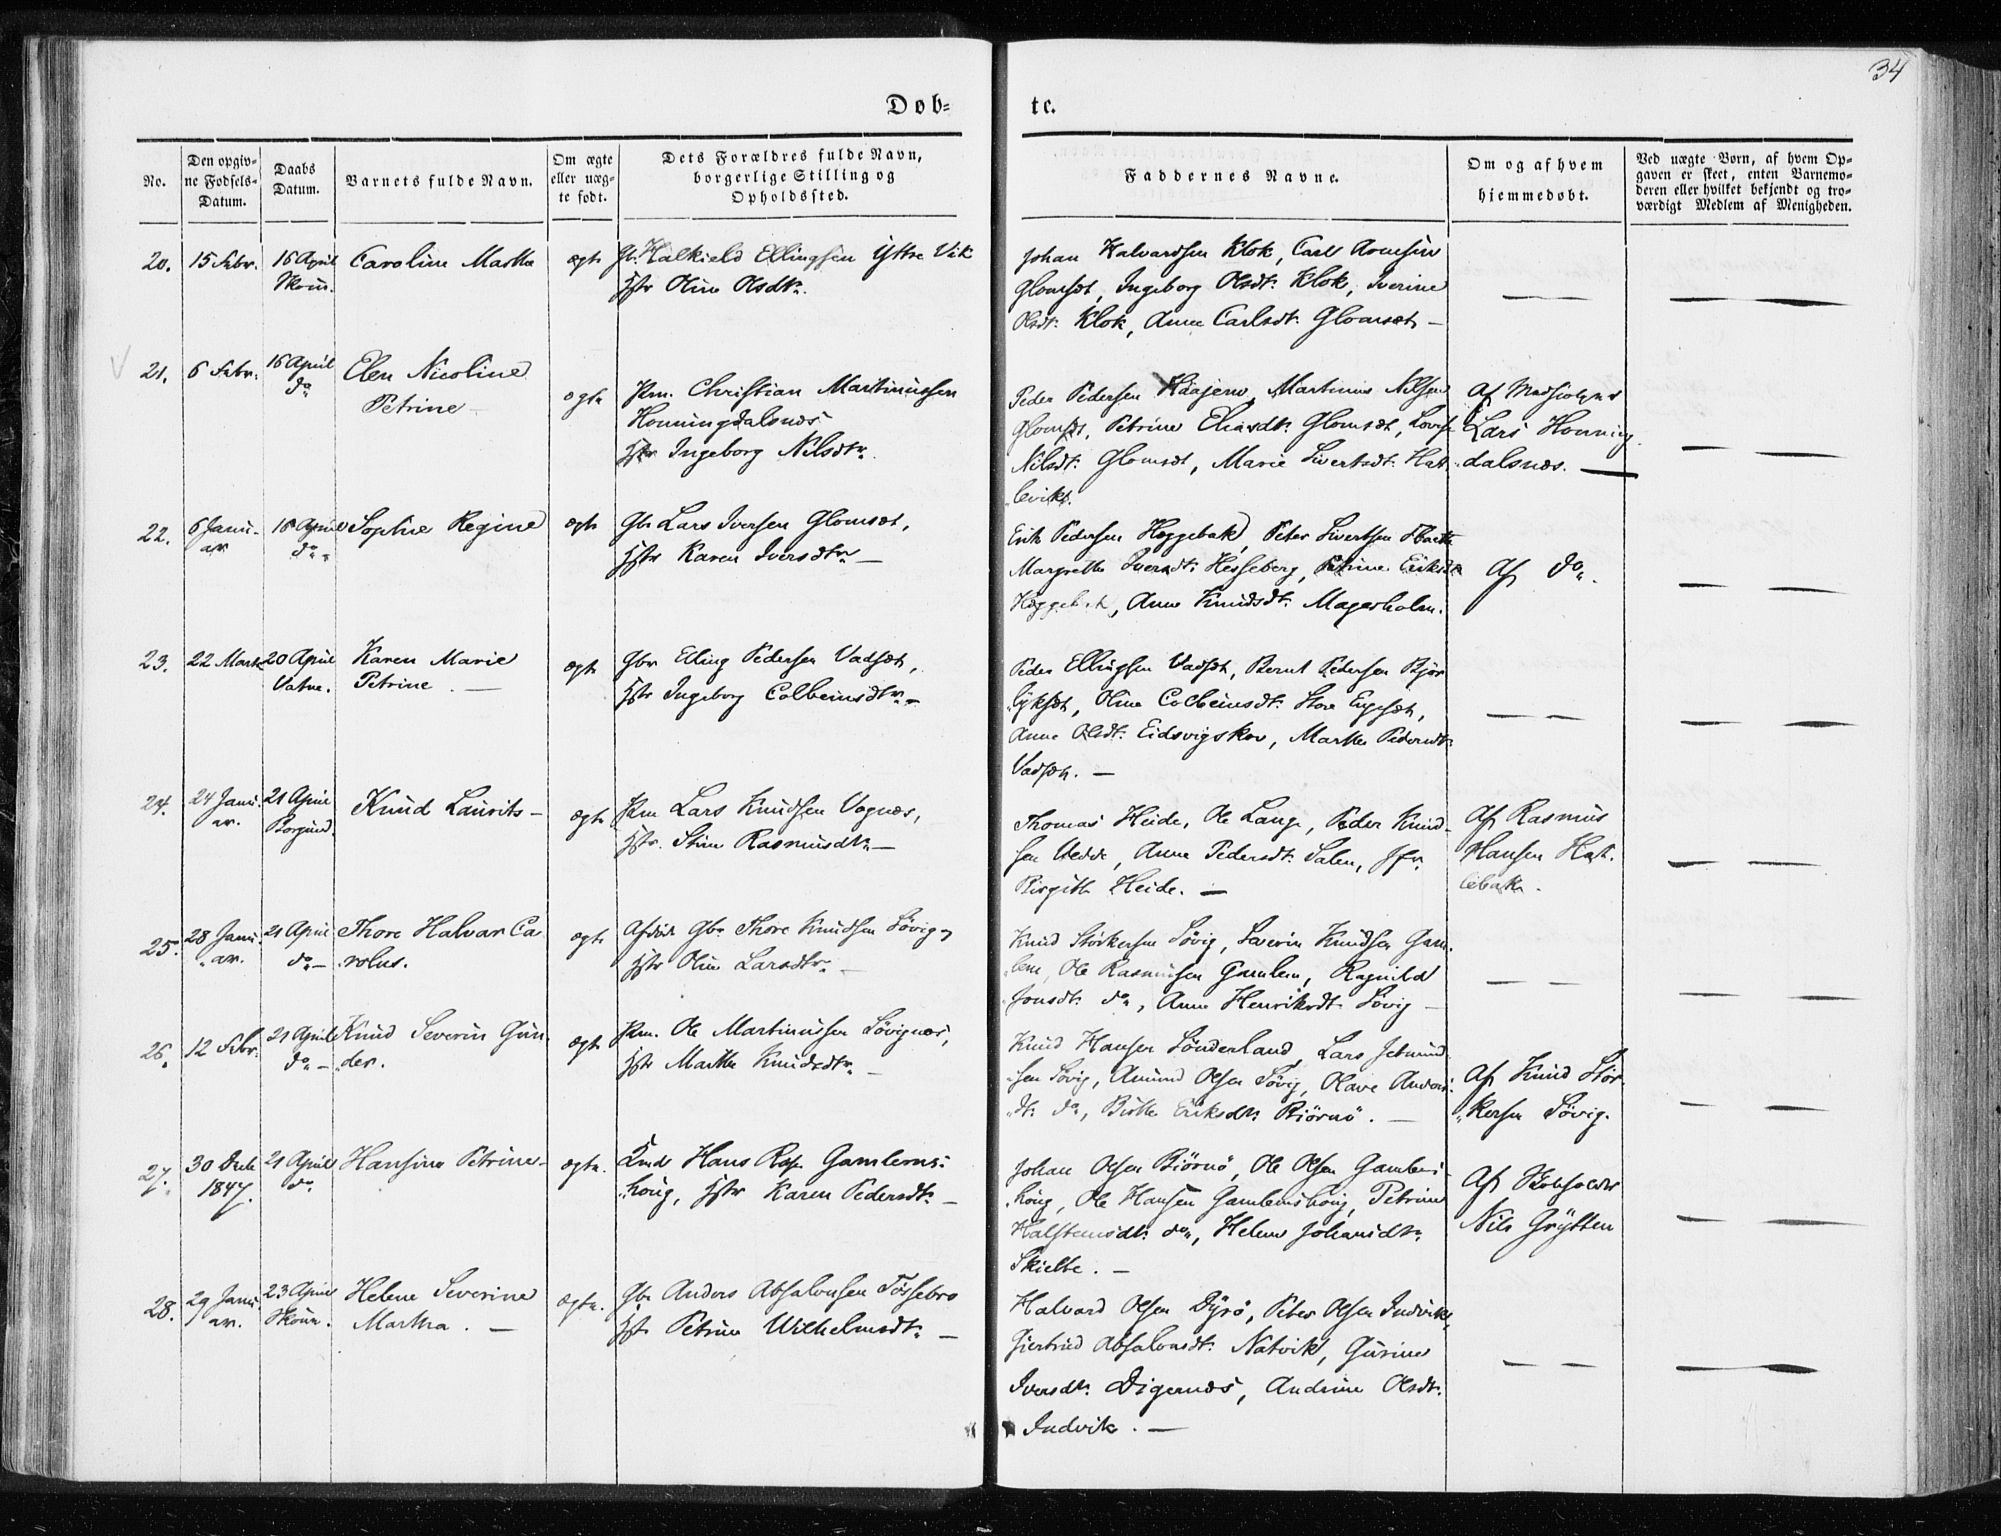 34
Døb=
te.
No.
Den opgiv-
ne Fødsels-
Datum.
Daabs
Datum.
Barnets fulde Navn.
Om ægte
eller uæg-
te født.
Dets Forældres fulde Navn,
borgerlige Stilling og
Opholdssted.
Faddernes Navne.
Om og af hvem
hjemmedøbt.
Ved uægte Børn, af hvem Op-
gaven er skeet, enten Barnemo-
deren eller hvilket bekjendt og tro-
værdigt Medlem af Menigheden.
20.
15 Febr.
16 April
Skoue.
Caroline Martha
ægte
Gbr. Halkield Ellingsen Yttre Vik
Hstr Oline Olsdtr.
Johan Halvardsen Klok, Carl Arnesen
Glomsæt, Ingeborg Olsdt. Klok, Iverine
Olsdt. Klok, Anne Carlsdt. Glomsæt —
21.
6 Febr.
16 April
do
Elen Nicoline
Petrine —
ægte
Pm. Christian Martinussen
Honningdalsnæs
Hstr Ingeborg Nilsdtr.
Peder Pedersen Haajem, Martinus Nilsen
Glomsæt, Petrine Eliasdt. Glomsæt, Lovise
Nilsdt. Glomsæt, Marie Sivertsdt. Hat-
levik.
Af
Lars Honning-
dalsnæs. —
22.
6 Janu-
ar
16 April
do
Sophie Regine
ægte
Gbr Lars Iversen Glomsæt,
Hstr Karen Iversdtr —
Erik Pedersen Heggebak, Peter Sivertsen
Margrethe Iversdt. Hesseberg, Petrine Eriksdt
Heggebak, Anne Knudsdt. Magerholm.
Af do.
23.
22 Marts
20 April
Vatne.
Karen Marie
Petrine. —
ægte
Gbr Elling Pedersen Vadset,
Hstr Ingeborg Colbeinsdtr. —
Peder Ellingsen Vadset, Bernt Pedersen Bjør-
lyksæt, Oline Colbeinsdt. Store Engesæt,
Anne Olsdt. Eidsvigskov, Marthe Pedersdt.
Vadset. —
24.
24 Janu-
ar.
21 April
Borgund
Knud Laurits —
ægte
Pm Lars Knudsen Vegnæs,
Hstr. Stine Rasmusdtr. —
Thomas Heide, Ole Lange, Peder Knud-
sen Aedde, Anne Pedersdt. Salen, Jfr.
Birgitte Heide. —
Af Rasmus
Hansen Hat-
lebak.
25.
28 Janu-
ar.
21 April
do —
Thore Halvar Ca-
rolus.
ægte
Afdøde Gbr Thore Knudsen Søvig,
Hstr Oline Larsdtr. —
Knud Størkersen Søvig, Severin Knudsen Gam-
lem, Ole Rasmusen Gamlem, Ragnild
Jonsdt. do, Anne Henriksdt. Søvig —
26.
12 Febr.
21 April
do —
Knud Severin Gun-
der.
ægte
Pm. Ole Martinussen Søvignæs,
Hstr Marthe Knudsdtr. —
Knud Hansen Sønderland, Lars Jetmund-
sen Søvig, Amund Olsen Søvig, Olave Anders-
dt. do, Birthe Eriksdt. Bjørnø. —
Af Knud Stør-
kersen Søvig.
27.
30 Decb
1847.
21 April
do
Hansine Petrine —
ægte.
Inds Hans Rasm. Gamlems-
houg, Hstr Karen Pedersdt. —
Johan Olsen Bjørnø, Ole Olsen Gamlems-
houg, Ole Hansen Gamlemshoug, Petrine
Halsteinsdt. do, Helene Johansdt.
Skielbe. —
Af Skoleholder
Nils Grytten
28.
29 Janu-
ar.
23 April
Skoue.
Helene Severine
Martha. —
ægte.
Gbr Anders Absalonsen Tøssebro
Hstr Petrine Wilhelmsdt. —
Halvard Olsen Dyrø, Peter Olsen Indvik,
Giertrud Absalonsdt. Natvik, Gurine
Iversdt. Digernæs, Andrine Olsdt.
Indvik. —